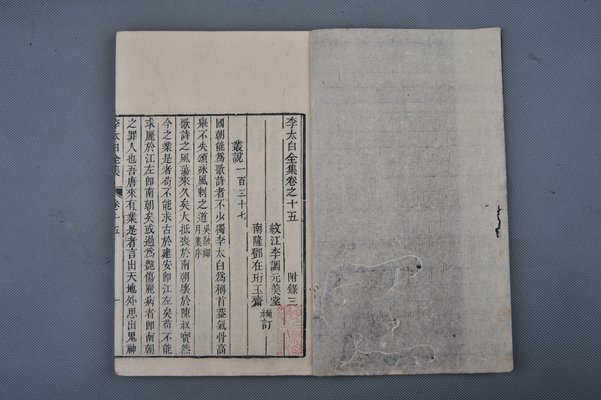 李太白全集卷之十五
附錄三
紋江李調元美堂
南隆鄧在珩玉齋 編訂
叢說一百三十七
國朝能爲歌詩者不少獨李太白爲稱首蓋氣骨高
舉不失頌詠風刺之道吳融禪月集序
歌詩之風蕩來久矣大抵喪於南朝壞於陳叔寶然
今之業是者苟不能求古於建安即江左矣苟不能
求麗於江左即南朝矣或過爲艷傷麗病者即南朝
之罪人也吾唐來有業是者言出天地外思出鬼神
李太白全集 卷十五 一